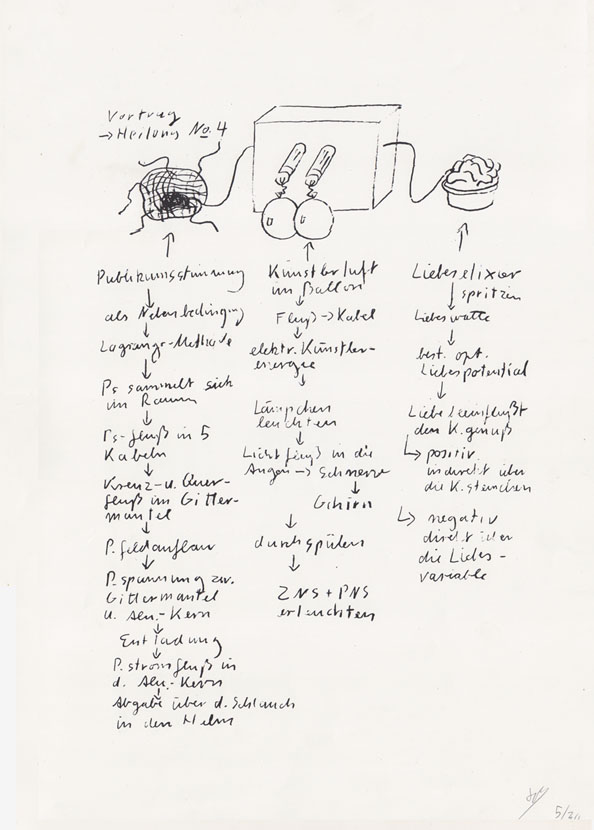 Vortrag
→ Heilung No. 4
Publikumsstimmung
als Nebenbedingung
Lagrange-Methode
Ps sammelt sich
im Raum
Ps-fluß in 5
Kabeln
Kreuz- u. Quer-
fluß im Gitter-
mantel
P. feldaufbau
P. spannung zw.
Gittermantel
u. Alu.-Kern
Entladung
P. stromfluß in
d. Alu.-Kern
Abgabe über d. Schlauch
in den Helm
Künstlerluft
im Ballon
Fluß → Kabel
elektr. Künstler-
energie
Lämpchen
leuchten
Lichtfluß in die
Augen → Schmerze
Gehirn
durchspülen
ZNS + PNS
erleuchten
Liebeselixier
spritzen
Liebeswatte
best. opt.
Liebespotential
Liebe beeinflußt
den K. genuß
→ positiv
indirekt über
die K. stündchen
→ negativ
direkt über
die Liebes-
variable
5/20